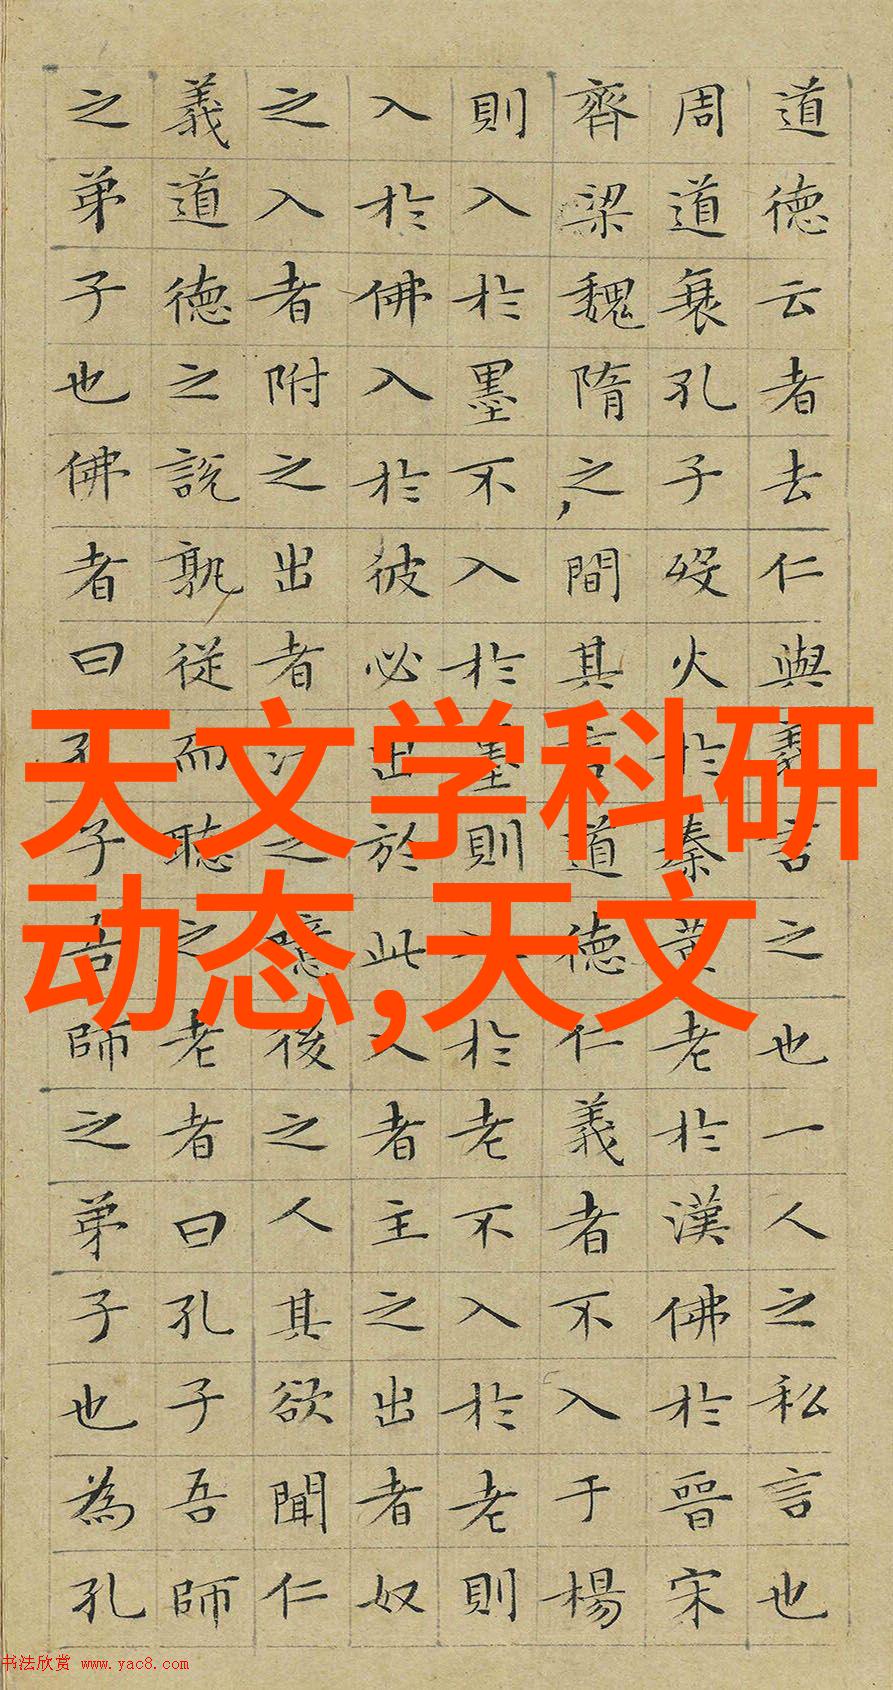 道德云者去仁與義言之也一人之私言也
周道衰孔子歿火於秦黃老於漢佛於晉宋
齊梁魏隋之間其言道德仁義者不入于楊
則入於墨不入於墨則入於老不入於老則
入於佛入於彼必出於此入者主之出者奴
之入者附之出者汙之噫後之人其欲聞仁
義道德之說孰從而聽之老者曰孔子吾師
之弟子也佛者曰孔子吾師之弟子也為孔
天文学科研
动态,天文
书法欣赏 www.yac8.com